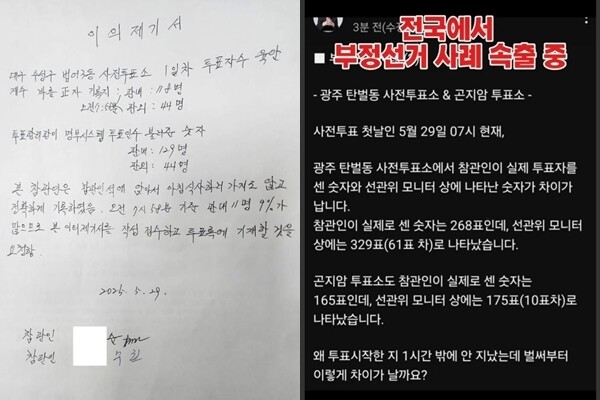 이의제기서
대구 수성구 범어3동 사전투표소 1일차 투표자수 육안
계수 바를 정자 기록지 : 관내 : 118명
관외 : 44명
투표관리관이 명부시스템 투표인수 불러준 숫자
관내 : 129명
관외 : 44명
본 참관인은 참관인석에 앉아서 아침식사하러 가지도 않고
정확하게 기록하였음. 오전 7시 58분 기준 관내 11명 9%가
많으므로 본 이의제기서를 작성 접수하고 투표록에 기재할 것을
요청함.
2025. 5. 29.
참관인
참관인
3분 전(수정
전국에서
부정선거 사례 속출 중
- 광주 탄벌동 사전투표소 & 곤지암 투표소 -
사전투표 첫날인 5월 29일 07시 현재,
광주 탄벌동 사전투표소에서 참관인이 실제 투표자를
센 숫자와 선관위 모니터 상에 나타난 숫자가 차이가
납니다.
참관인이 실제로 센 숫자는 268표인데, 선관위 모니터
상에는 329표(61표 차)로 나타났습니다.
곤지암 투표소도 참관인이 실제로 센 숫자는
165표인데, 선관위 모니터 상에는 175표(10표차)로
나타났습니다.
왜 투표시작한 지 1시간 밖에 안 지났는데 벌써부터
이렇게 차이가 날까요?